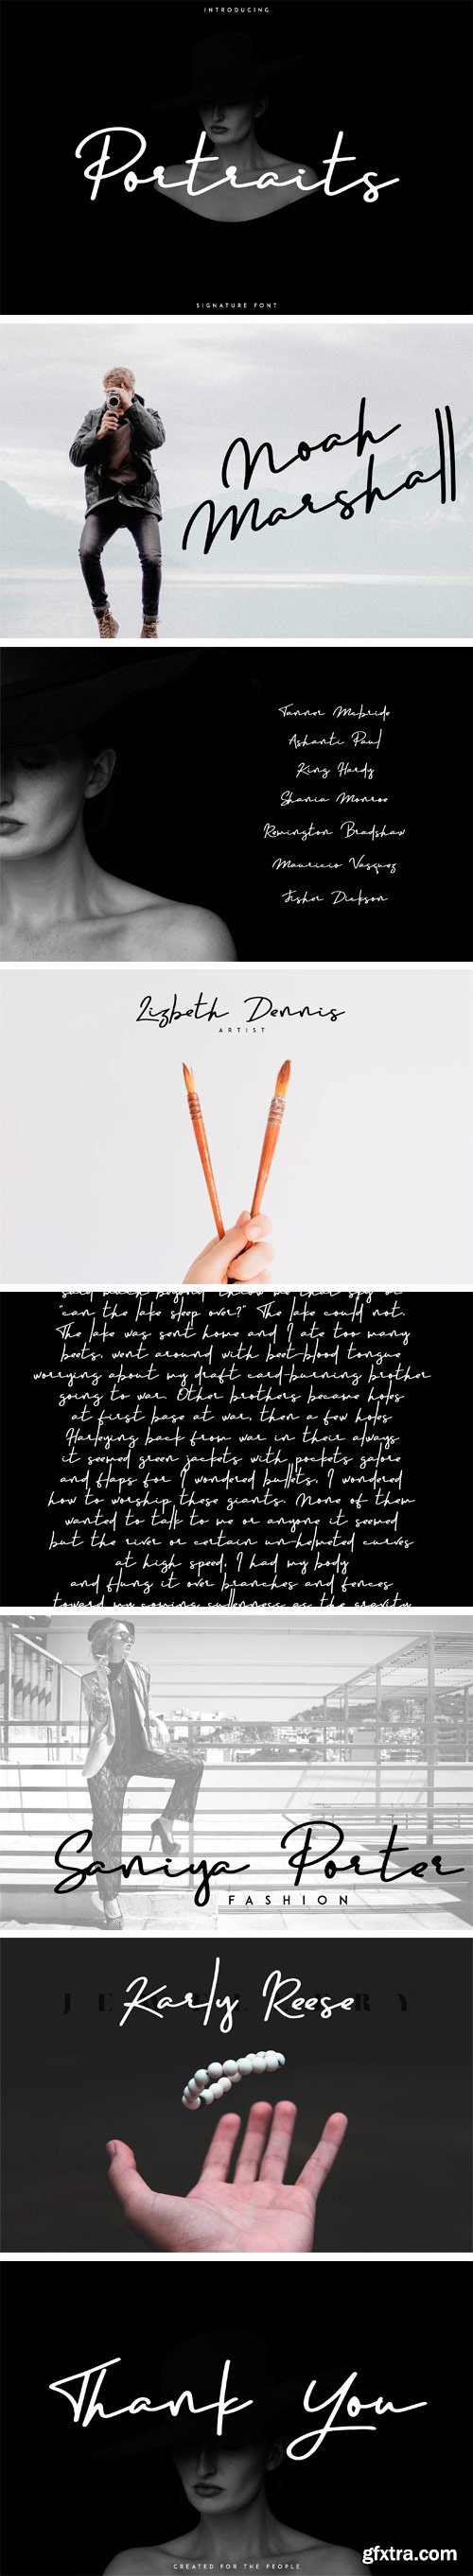 INTRODUCING
Portraits
SIGNATURE FONT
Noah
Marshall
Tanner Mcbride
Ashanti Paul
King Hardy
Shania Monroe
Remington Bradshaw
Mauricio Vasquez
Fisher Dickson
Lizbeth Dennis
ARTIST
said much beyond throw me that spy or
"can the lake sleep over?" The lake could not.
The lake was sent home and I ate too many
beets, went around with beet-blood tongue
worrying about my draft card-burning brother
going to war. Other brothers became holes
at first base at war, then a few holes
Harleying back from war in their always
it seemed green jackets with pockets galore
and flaps for I wondered bullets, I wondered
how to worship these giants. None of them
wanted to talk to me or anyone it seemed
but the river or certain un-helmeted curves
at high speed, I had my body
and flung it over branches and fences
toward my coming sullenness as the gravity
Saniya Porter
FASHION
JEWELLERY
Karly Reese
Thank You
CREATED FOR THE PEOPLE
gfxtra.com